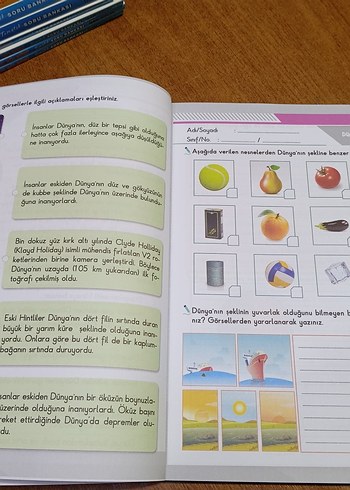 SORU BANKASI
SORU BANKASI
görsellerle ilgili açıklamaları eşleştiriniz.
İnsanlar Dünya'nın, düz bir tepsi gibi olduğuna
hatta çok fazla ilerleyince aşağıya düşüldüğü-
ne inanıyordu.
İnsanlar eskiden Dünya'nın düz ve gökyüzünün
de kubbe şeklinde Dünya'nın üzerinde bulundu-
ğuna inanırlardı.
Bin dokuz yüz kırk altı yılında Clyde Holliday
(Klayd Holiday) isimli mühendis fırlatılan V2 ro-
ketlerinden birine kamera yerleştirdi. Böylece
Dünya'nın uzayda (105 km yukarıdan) ilk fo-
toğrafı çekilmiş oldu.
Eski Hintliler Dünya'nın dört filin sırtında duran
büyük bir yarım küre şeklinde olduğuna inanı-
yordu. Onlara göre bu dört fil de bir kaplum-
bağanın sırtında duruyordu.
insanlar eskiden Dünya'nın bir öküzün boynuzla-
üzerinde olduğuna inanıyorlardı. Öküz başını
reket ettirdiğinde Dünya'da depremler olu-
du.
Adı/Soyadı :
Sınıf/No. : /
Aşağıda verilen nesnelerden Dünya'nın şekline benzer
Dünya'nın şeklinin yuvarlak olduğunu bilmeyen b
nız? Görsellerden yararlanarak yazınız.